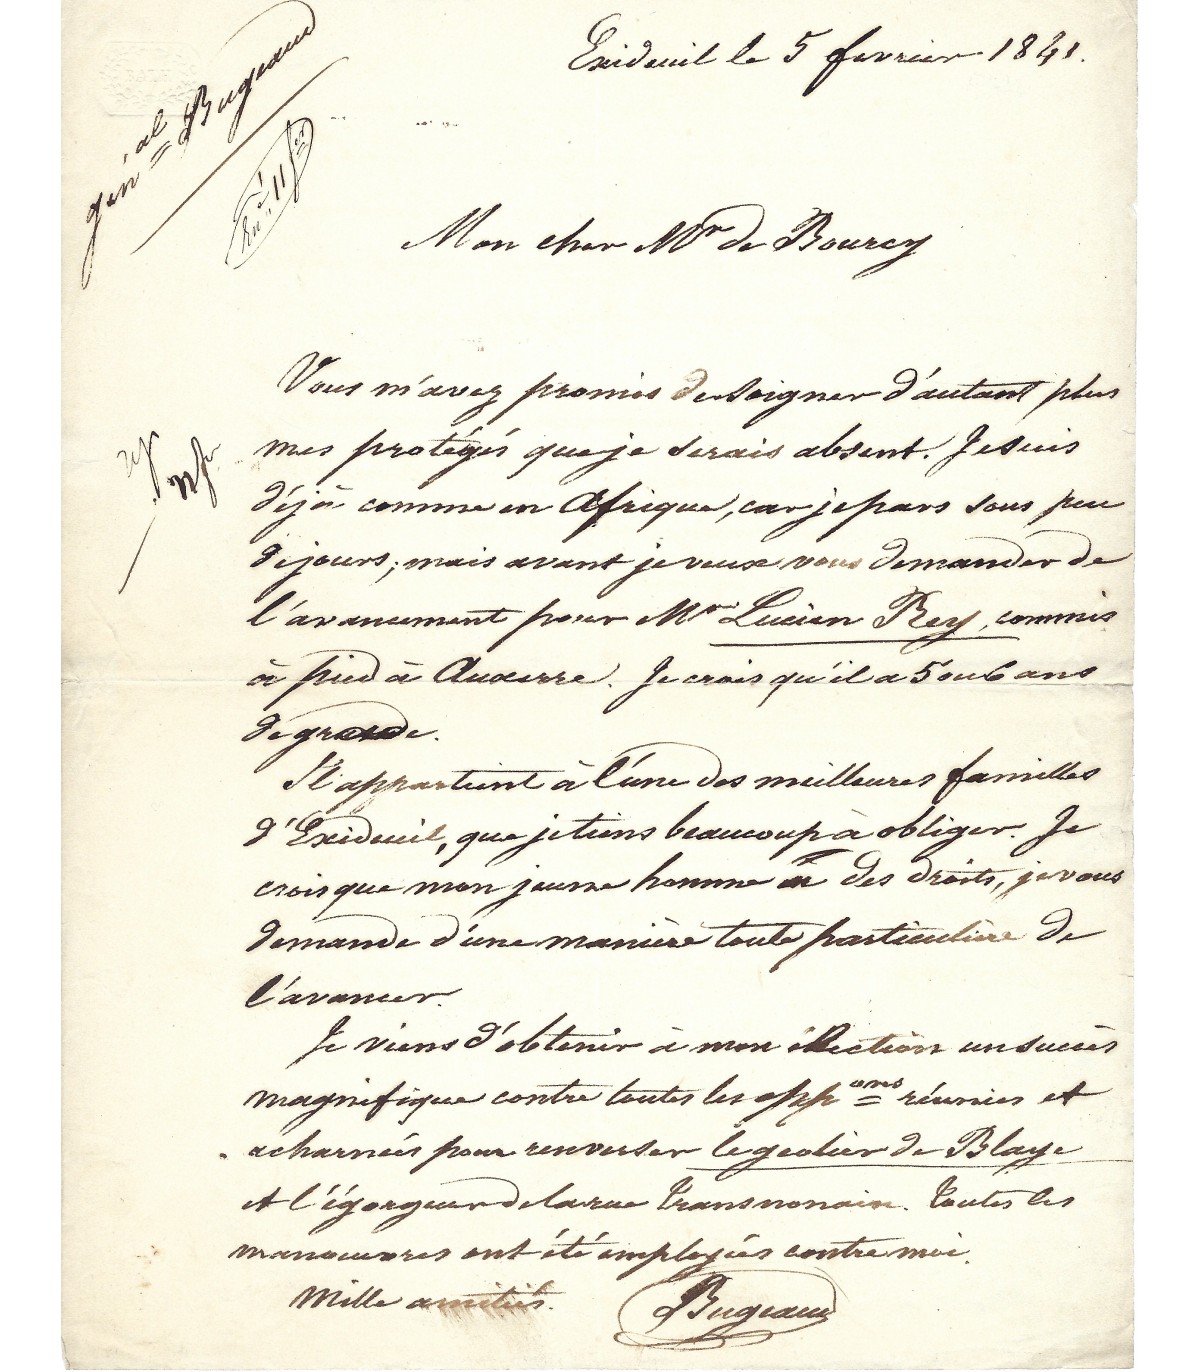 Exideuil le 5 fevrier 1841.
gén al Bugeaud
Mon cher Mr de Bourcy
Vous m'avez promis de soigner d'autant plus
mes protégés que je serais absent. Je suis
déjà comme en Afrique, car je pars sous peu
de jours; mais avant je veux vous demander de
l'avancement pour Mr Lucien Rey, commis
à pied à Auxerre. Je crois qu'il a 5 ou 6 ans
de grade.
Il appartient à l'une des meilleures familles
d'Exideuil, que je tiens beaucoup à obliger. Je
crois que mon jeune homme a des droits, je vous
demande d'une manière toute particulière de
l'avancer.
Je viens d'obtenir à mon élection un succès
magnifique contre toutes les opp ons réunies et
acharnées pour renverser le geolier de Blaye
et l'égorgeur de la rue Transnonain. Toutes les
manoeuvres ont été employées contre moi.
Mille amitiés.
Bugeaud